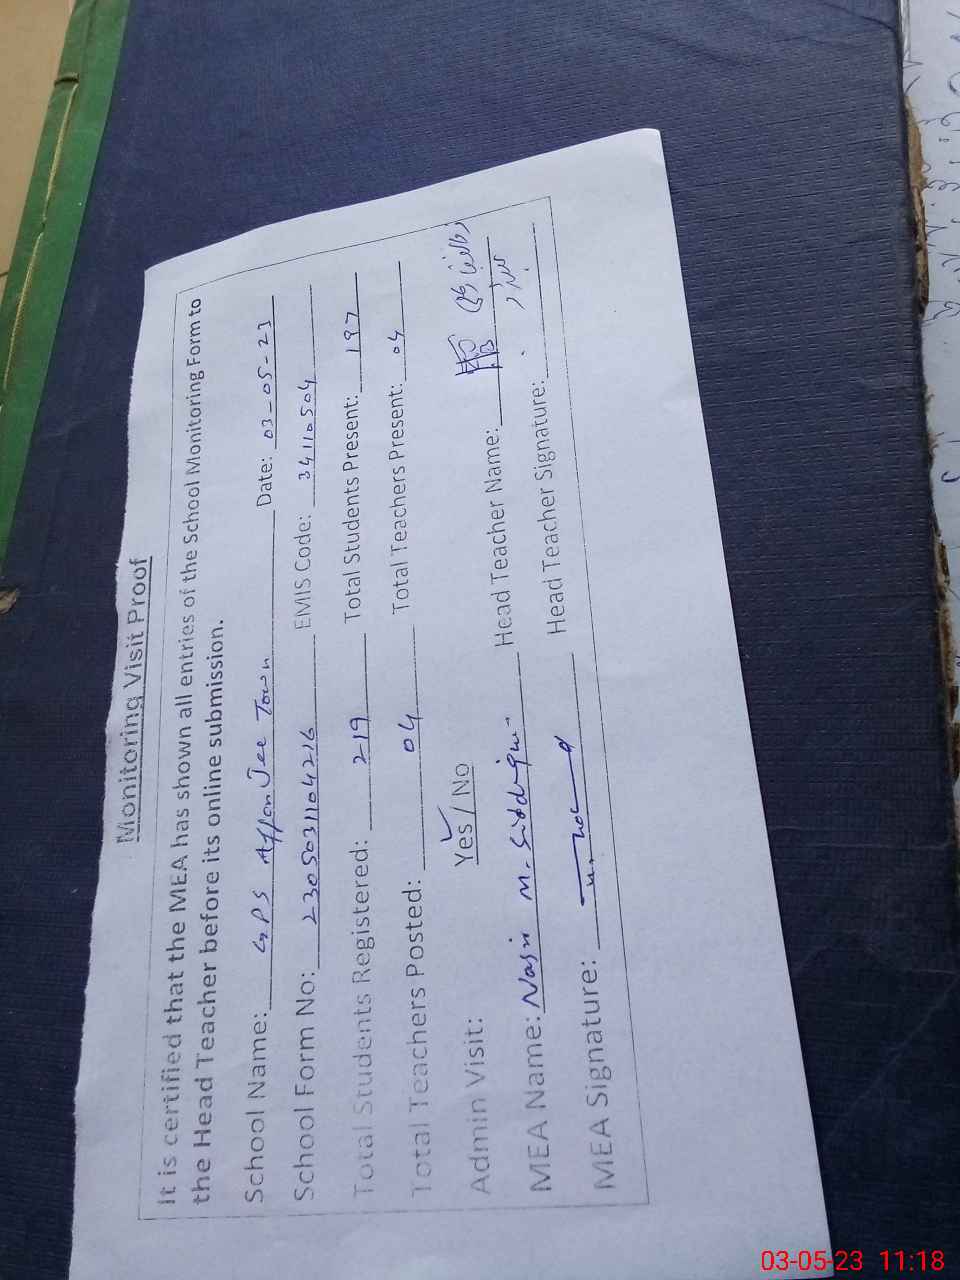 Monitoring Visit Proof
It is certified that the MEA has shown all entries of the School Monitoring Form to
the Head Teacher before its online submission.
School Name: GPS Affan Jee Town Date: 03-05-23
School Form No: 2305031104216 EMIS Code: 34110504
Total Students Registered: 219 Total Students Present: 197
Total Teachers Posted: 04 Total Teachers Present: 04
Admin Visit: Yes / No
MEA Name: Nasir M. Siddiqui Head Teacher Name:
MEA Signature: Head Teacher Signature:
03-05-23 11:18